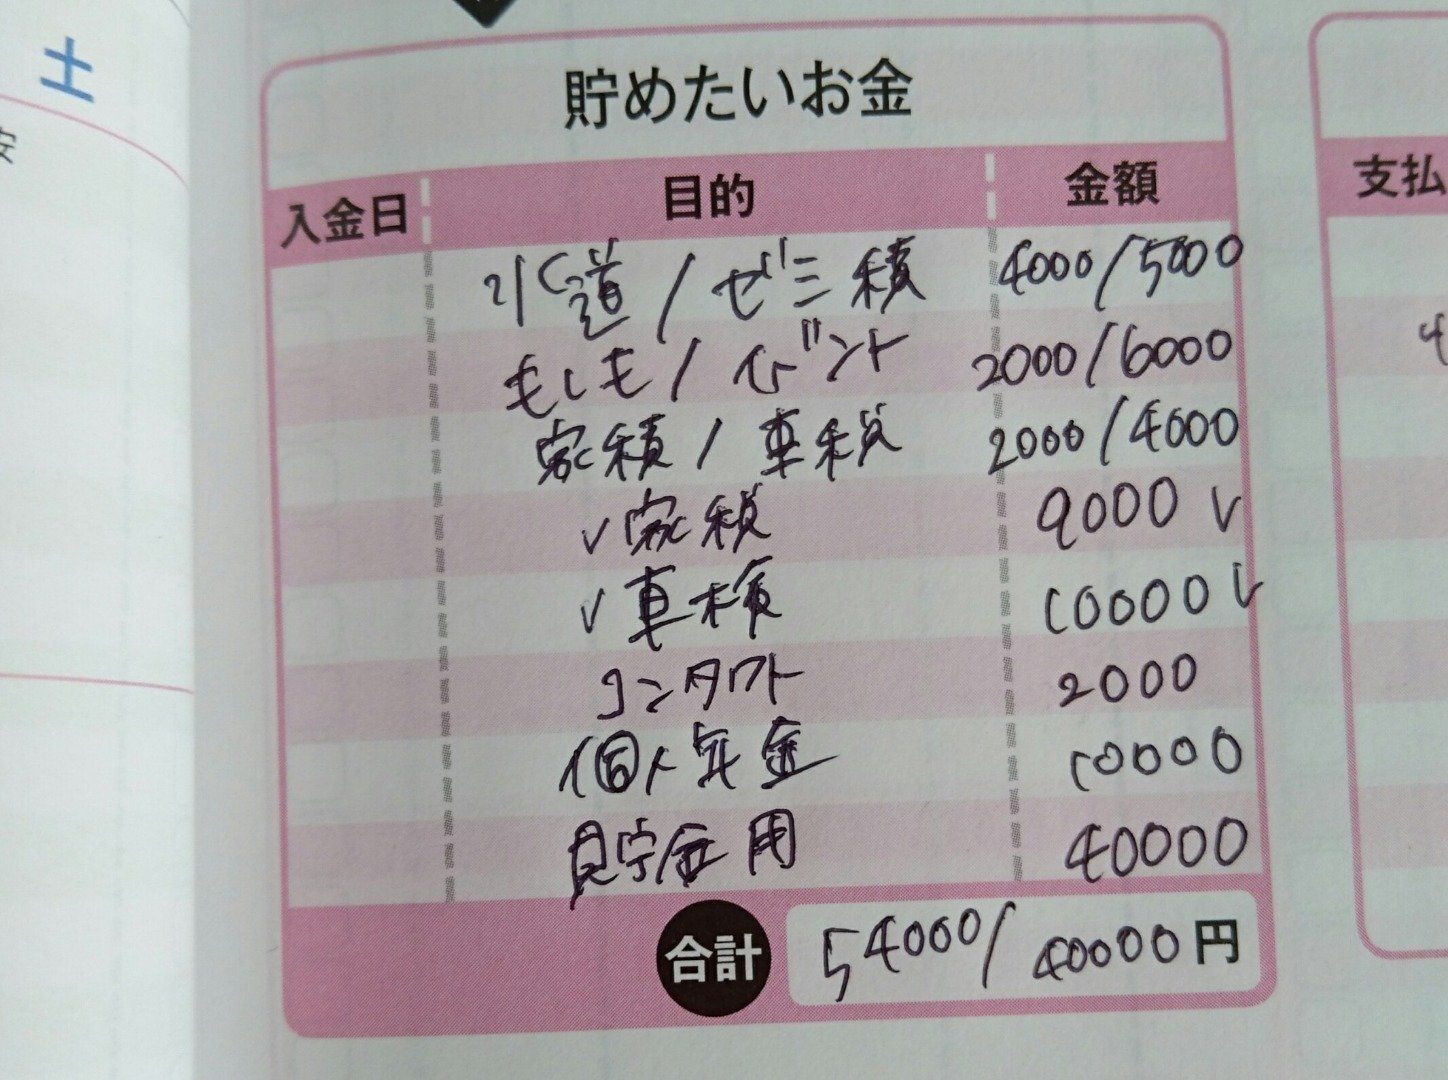 土
安
貯めたいお金
入金日 目的 金額
支払
水道/ゼミ積 4000/5000
もしも/イベント 2000/6000
家積/車税 2000/4000
✓家税 9000✓
✓車検 10000✓
コンタクト 2000
個人年金 10000
貯金用 40000
合計 54000/40000円